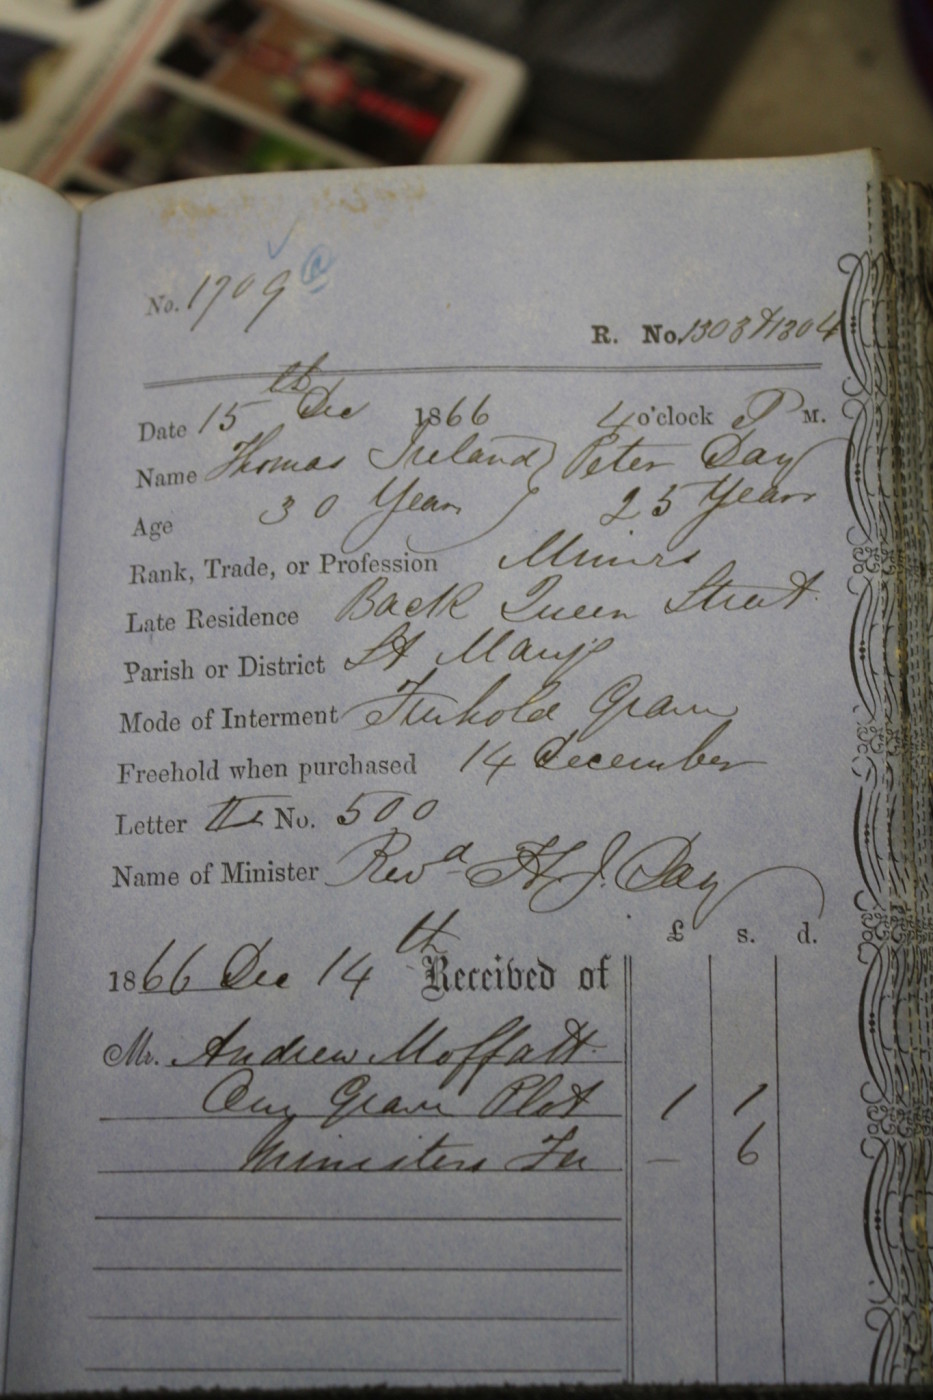 No. 1709
R. No. 1303 & 1304
Date 15th Dec 1866 4 o'clock P M.
Name Thomas Ireland } Peter Day
Age 30 Years 25 Years
Rank, Trade, or Profession Miners
Late Residence Back Queen Street
Parish or District St Mary's
Mode of Interment Freehold Grave
Freehold when purchased 14 December
Letter No. 500
Name of Minister Revd H. J. Day
£ s. d.
1866 Dec 14th Received of
Mr. Andrew Moffatt
One Grave Plot 1 1
Ministers Fee — 6